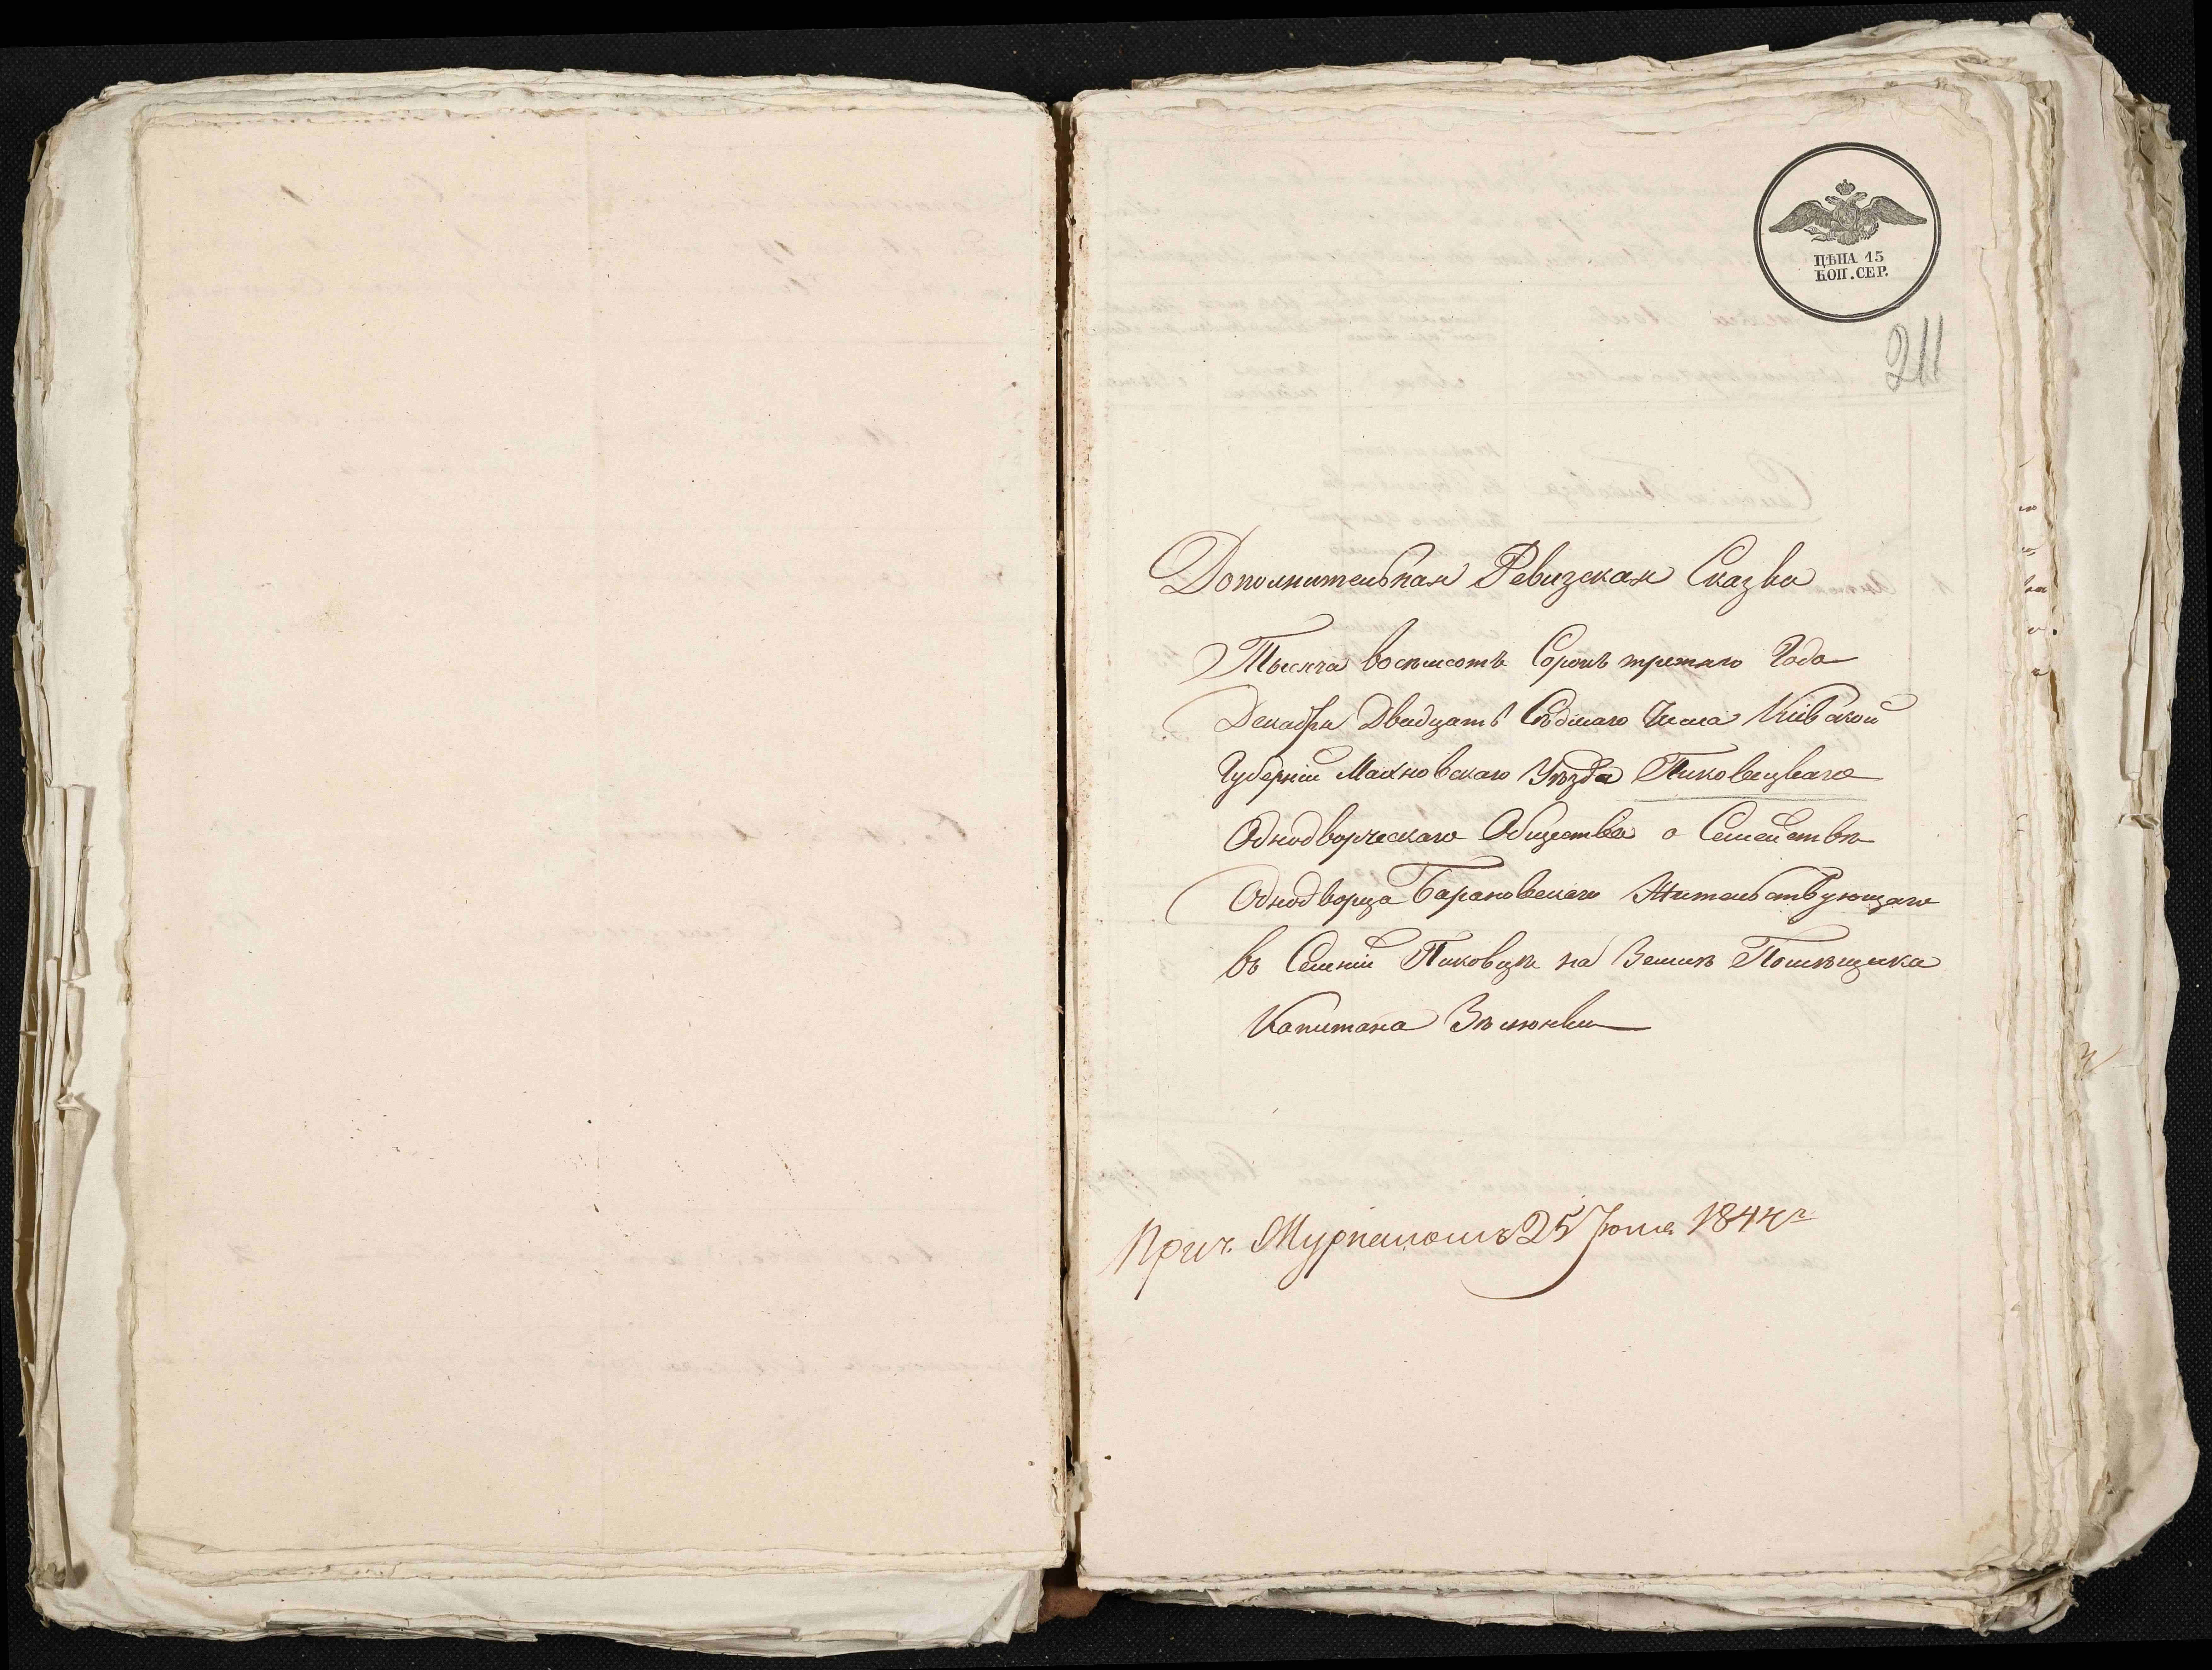 ЦѢНА 15
КОП. СЕР.
211
Дополнительная Ревизская Сказка
Тысяча восемсотъ Сорокъ третяго Года
Декабря Двадцать Седмаго Числа Кіевской
Губерніи Махновскаго Уѣзда Пиковецкаго
Однодворческаго Общества о Семействѣ
Однодворца Барановскаго Жительствующаго
въ Селеніи Пиковцѣ на Землѣ Помѣщика
Капитана
25 Юля 1844 г